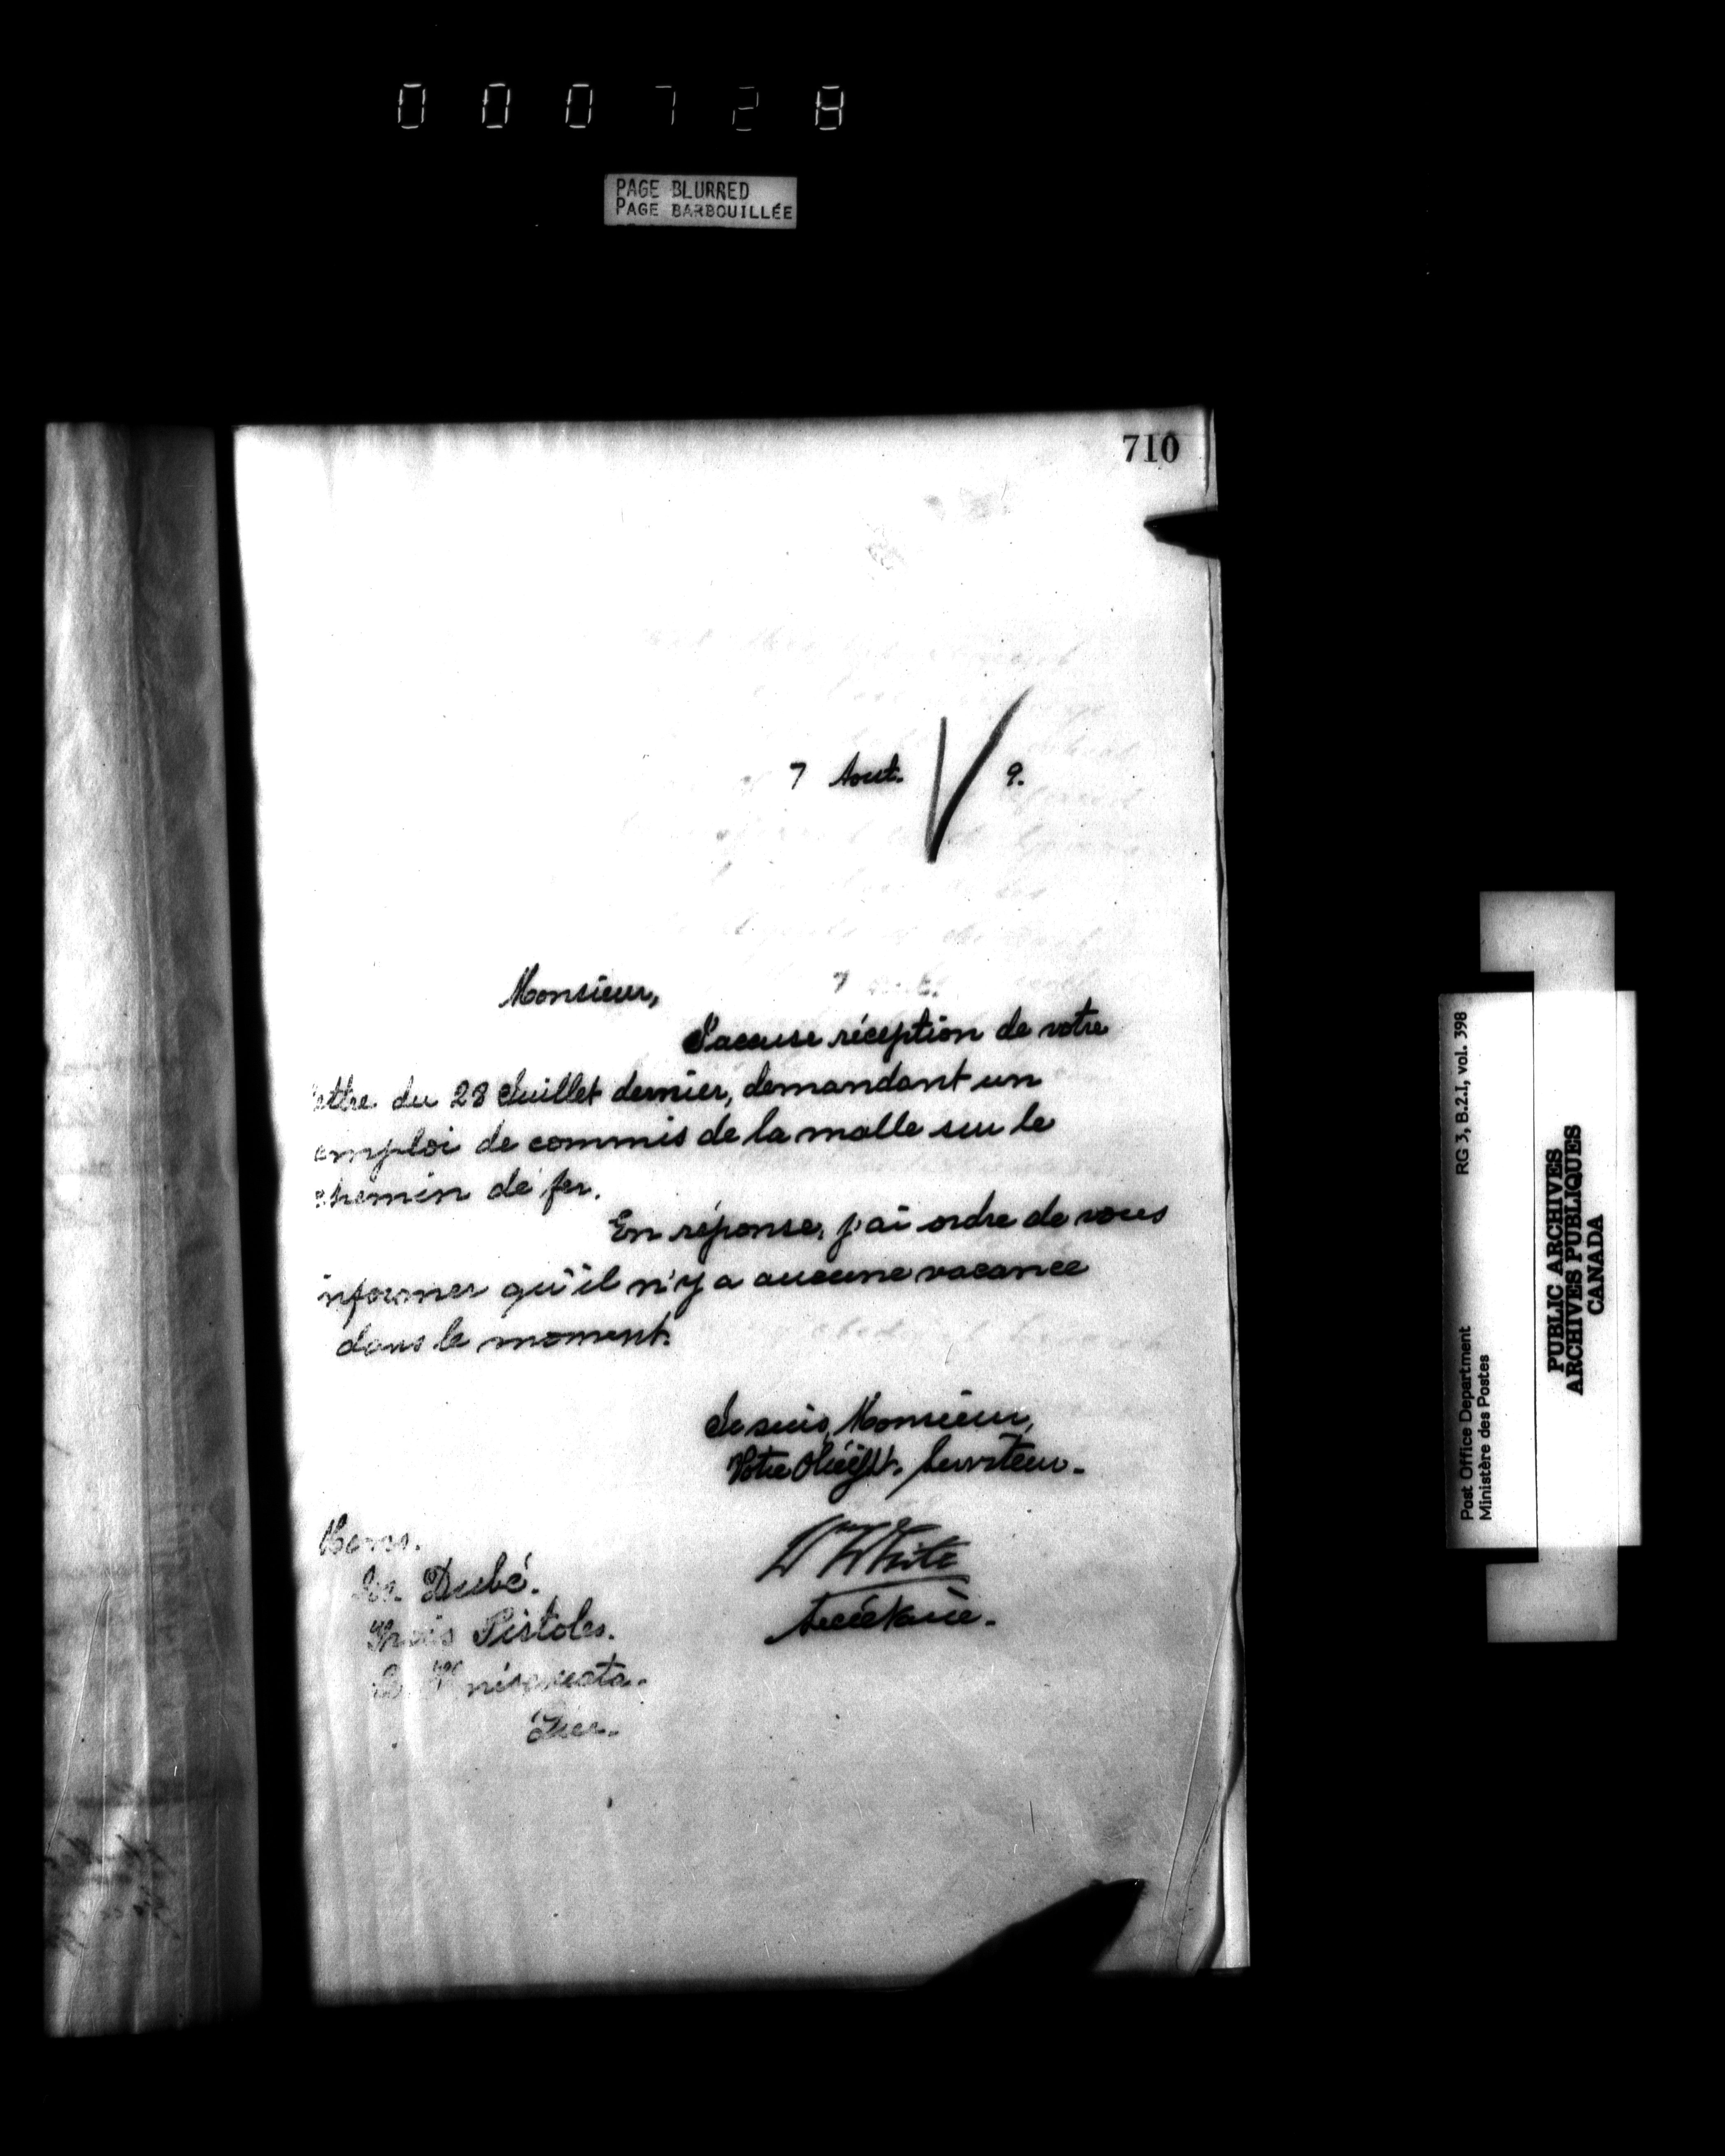 000728
PAGE BLURRED
PAGE BARBOUILLÉE
710
7 Aout. 9.
Monsieur,
J'accuse réception de votre
lettre du 28 Juillet dernier, demandant un
emploi de commis de la malle sur le
chemin de fer.
En réponse, j'ai ordre de vous
informer qu'il n'y a aucune vacance
dans le moment.
Je suis, Monsieur,
Votre Obéisst. Serviteur.
Wm White
Secrétaire.
Mons.
Dubé.
Trois Pistoles.
Témiscouata.
Que.
RG 3, B.2.1, vol. 398
Post Office Department
Ministère des Postes
PUBLIC ARCHIVES
ARCHIVES PUBLIQUES
CANADA